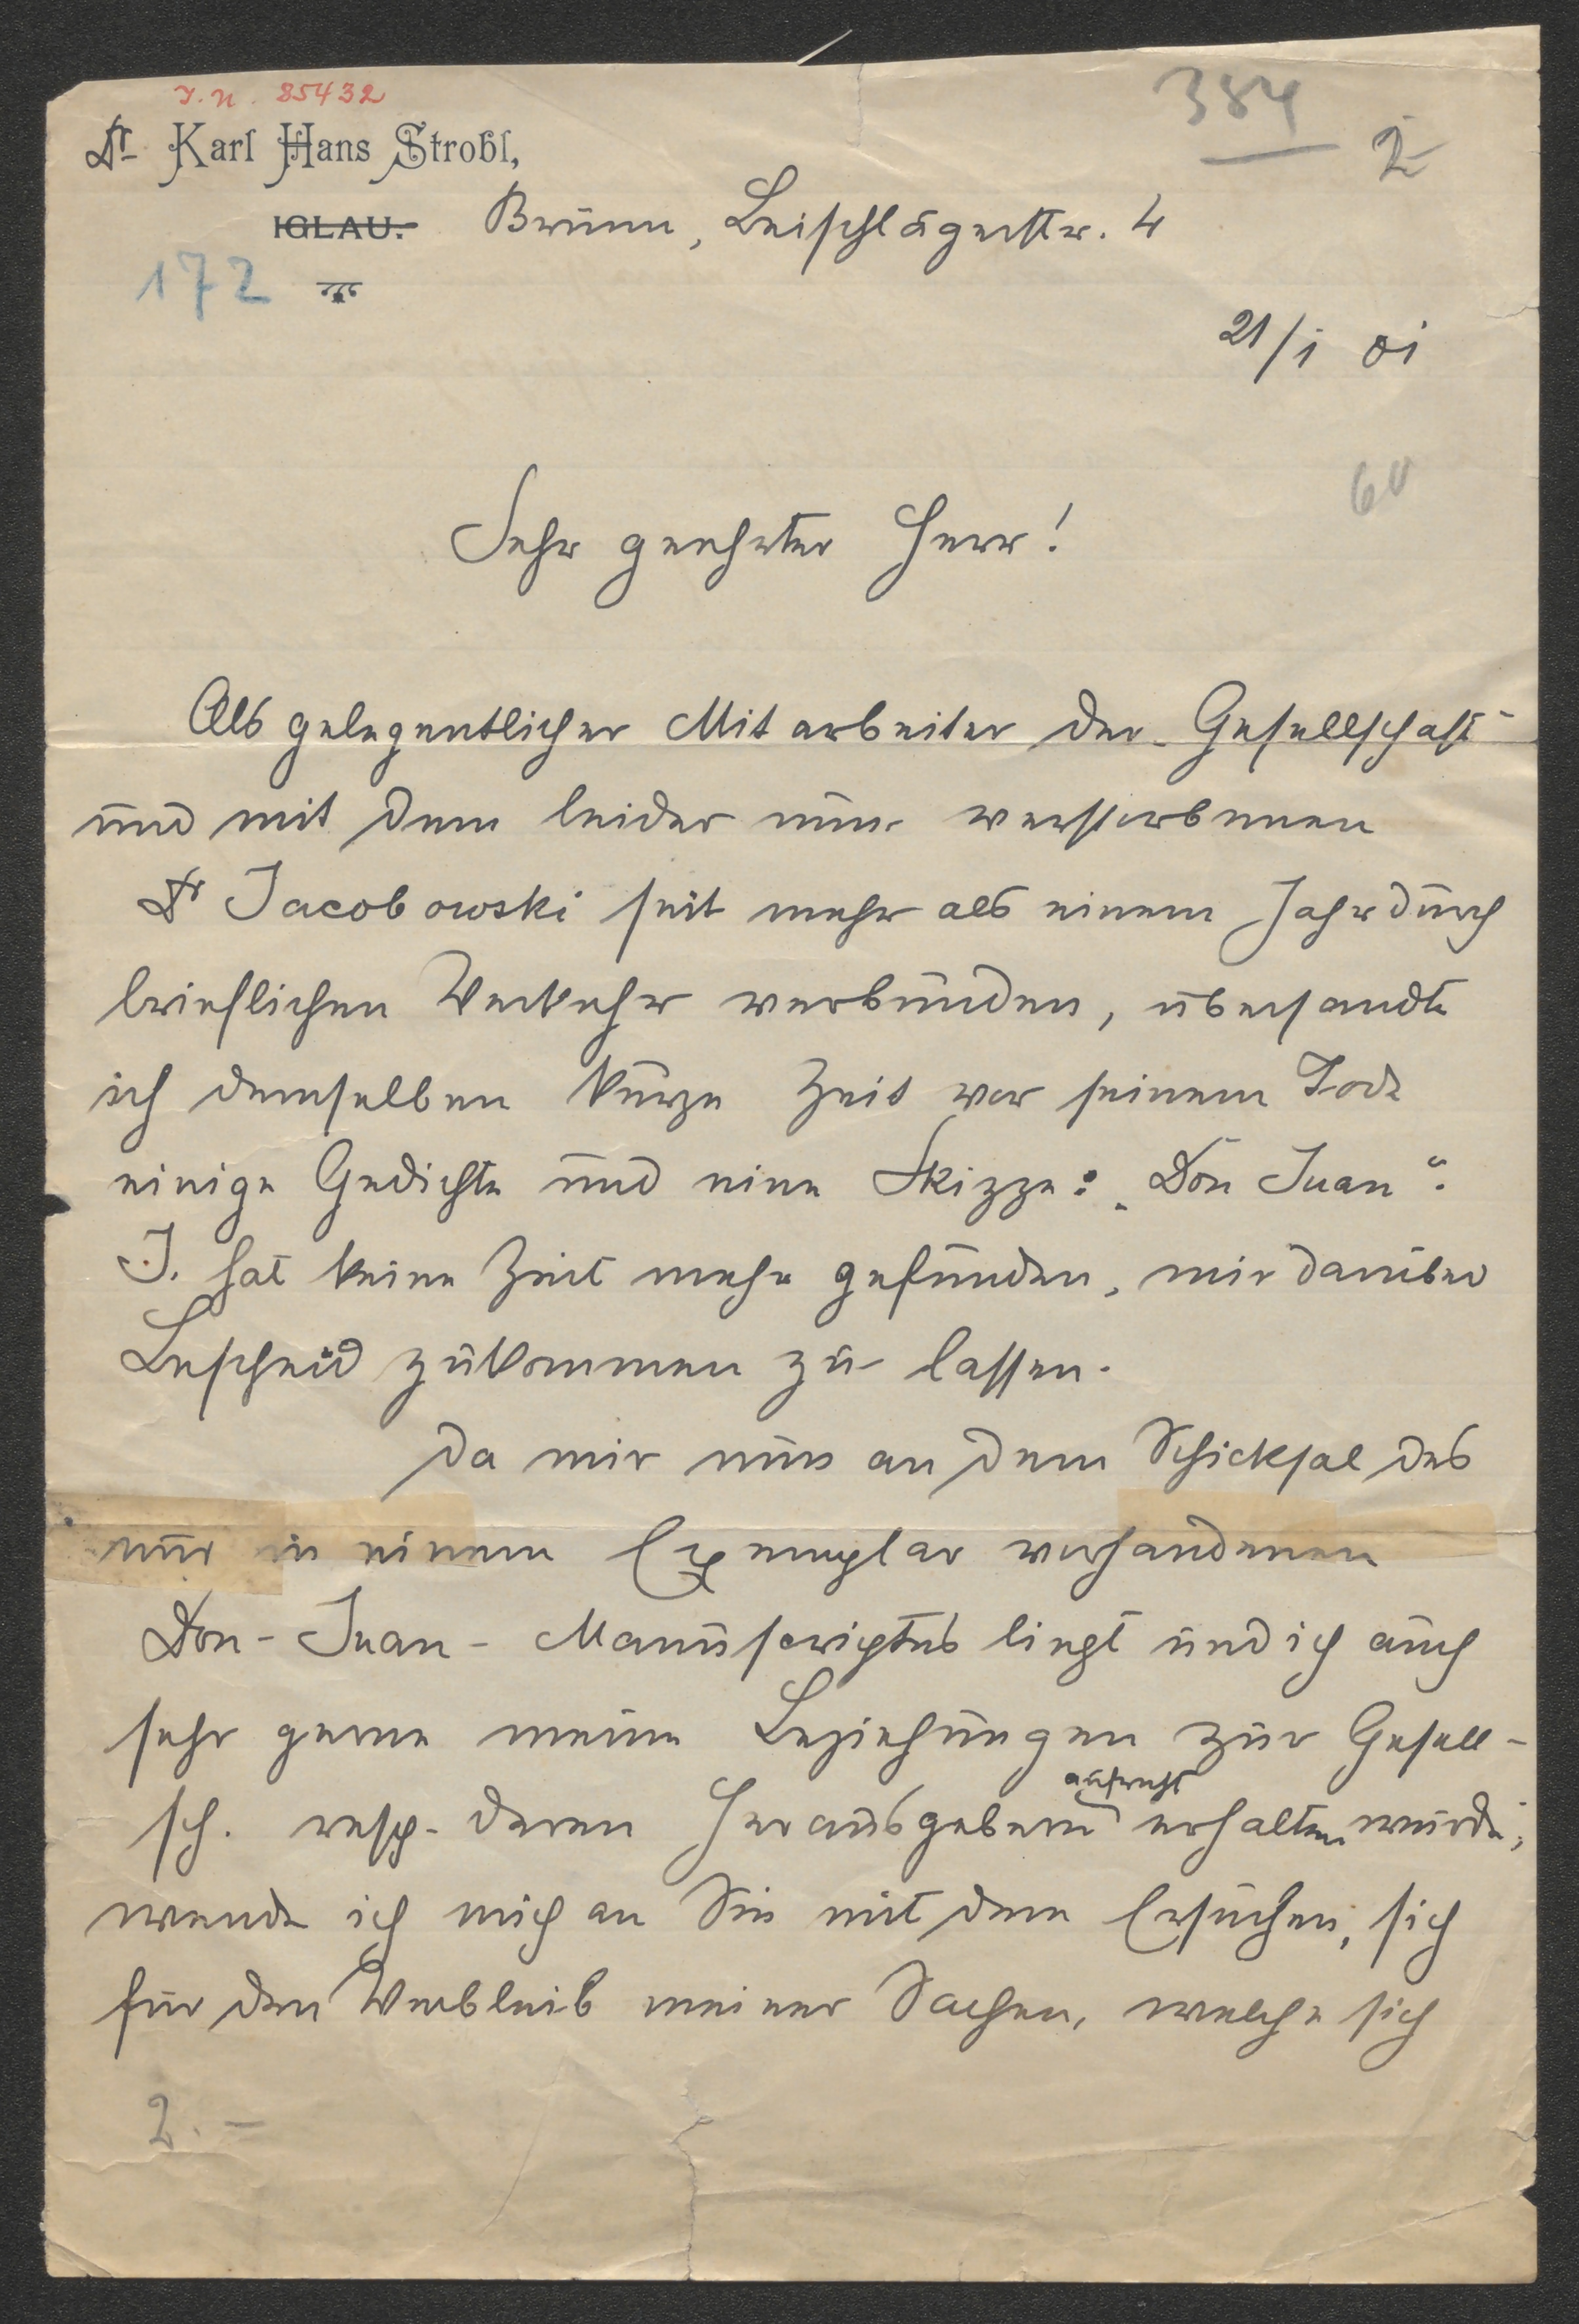 I.N. 85432
384
2
Dr Karl Hans Strobl,
IGLAU. Brünn, Beischlägerstr. 4
172
21/I 01
60
Sehr geehrter Herr!
Als gelegentlicher Mitarbeiter der „Gesellschaft"
und mit dem leider nun verstorbenen
Dr Jacobowski seit mehr als einem Jahr durch
brieflichen Verkehr verbunden, übersandte
ich demselben kurze Zeit vor seinem Tode
einige Gedichte und eine Skizze: „Don Juan".
J. hat keine Zeit mehr gefunden, mir darüber
Bescheid zukommen zu lassen.
Da mir nun an dem Schicksal des
nur in einem Exemplar vorhandenen
Don-Juan-Manuscriptes liegt und ich auch
sehr gerne meine Beziehungen zur Gesell-
sch. resp. deren Herausgebern aufrecht erhalten würde,
wende ich mich an Sie mit dem Ersuchen, sich
für den Verbleib meiner Sachen, welche sich
2.-